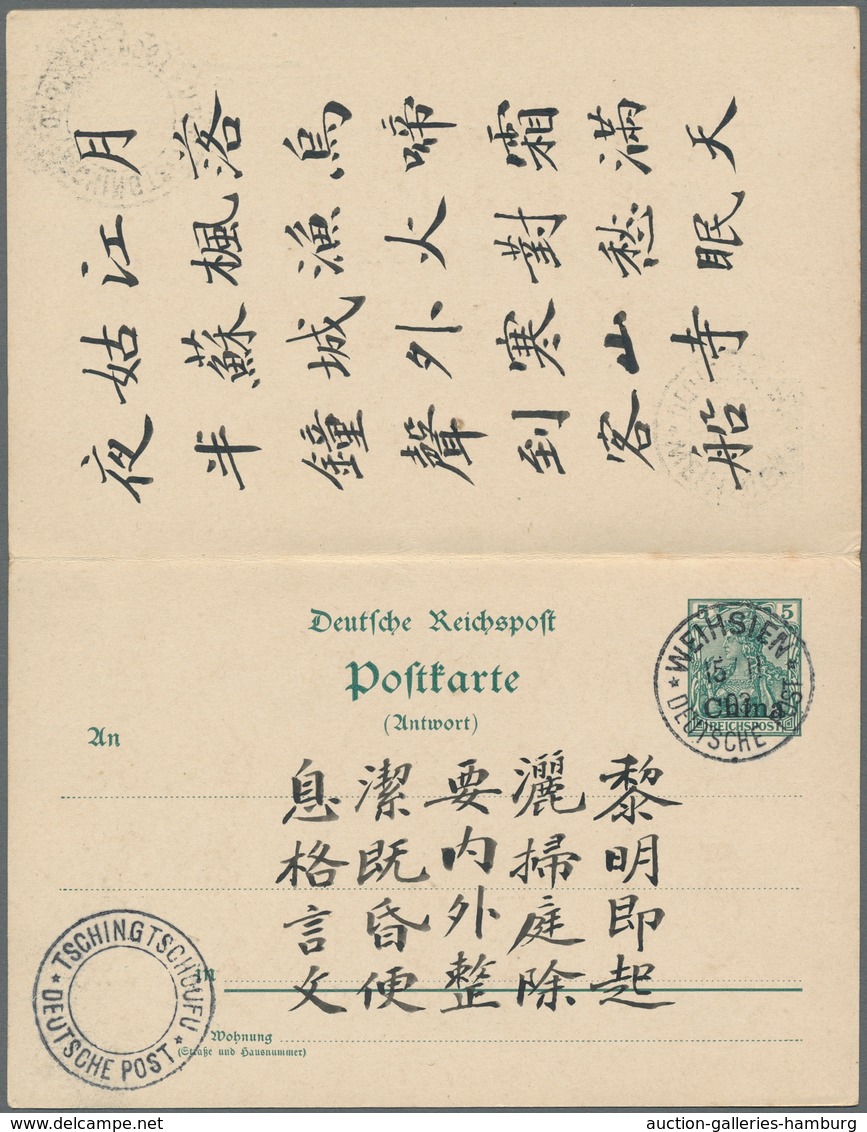 月落烏啼霜滿天
江楓漁火對愁眠
姑蘇城外寒山寺
夜半鐘聲到客船
Deutsche Reichspost
Postkarte
(Antwort)
5 5
China
REICHSPOST
WEIHSIEN
DEUTSCHE POST
An
黎明即起
灑掃庭除
要內外整
潔既昏便
息格言文
in
Wohnung
(Straße und Hausnummer)
TSCHINGTSCHOUFU
DEUTSCHE POST
auction-galleries-hamburg